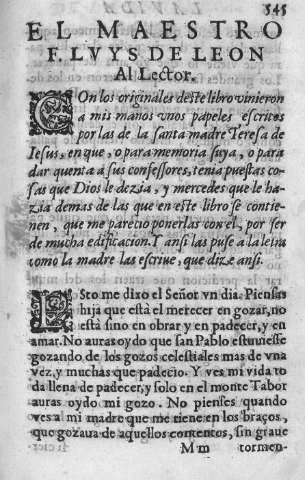 545
EL MAESTRO
F. LVYS DE LEON
Al Lector.
COn los originales deste libro vinieron
a mis manos vnos papeles escritos
por las de la santa madre Teresa de
Iesus, en que, o para memoria suya, o para
dar quenta a sus confessores, tenia puestas co-
sas que Dios le dezia, y mercedes que le ha-
zia demas de las que en este libro se contie-
nen, que me parecio ponerlas con el, por ser
de mucha edificacion. Y ansi las puse a la letra
como la madre las escriue, que dize ansi.
ESto me dixo el Señor vn dia. Piensas
hija que està el merecer en gozar, no
està sino en obrar y en padecer, y en
amar. No auras oydo que san Pablo estuuiesse
gozando de los gozos celestiales mas de vna
vez, y muchas que padecio. Y ves mi vida to
da llena de padecer, y solo en el monte Tabor
auras oydo mi gozo. No pienses quando
ves a mi madre que me tiene en los braços,
que gozaua de aquellos contentos, sin graue
Mm tormen-